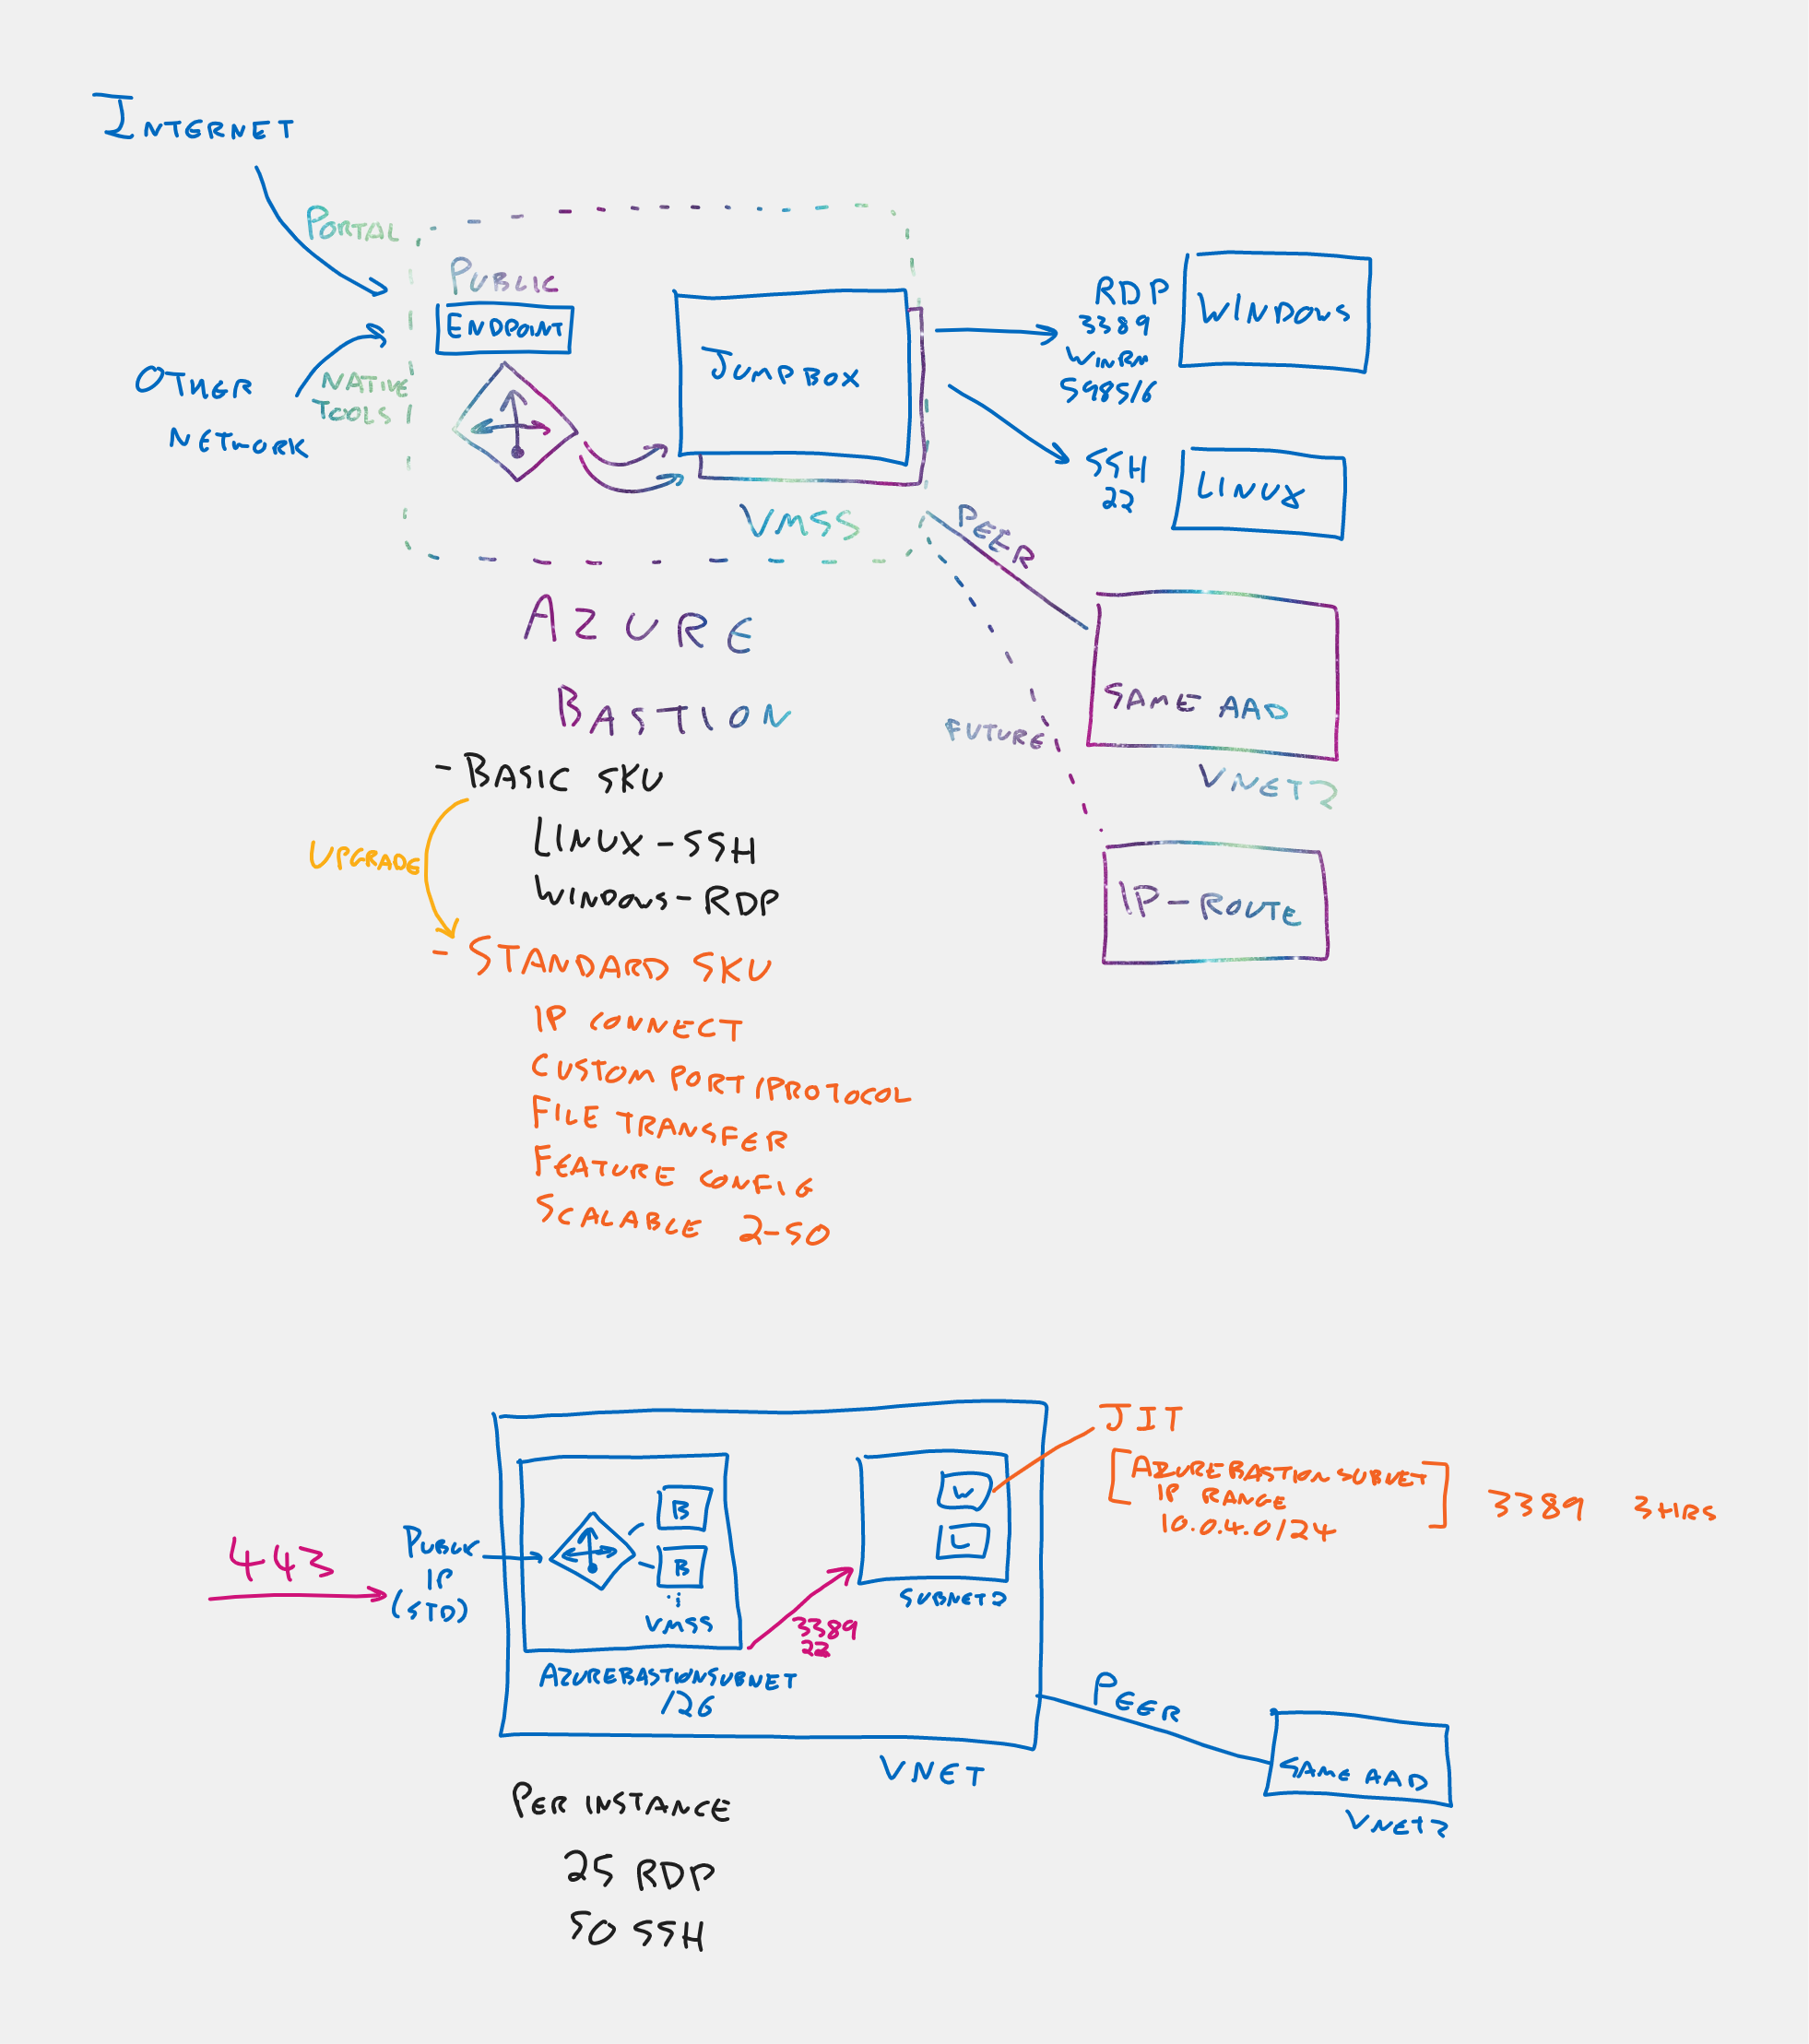 INTERNET
PORTAL
PUBLIC
ENDPOINT
OTHER
NETWORK
NATIVE
TOOLS
JUMPBOX
VMSS
RDP
3389
WINRM
5985/6
WINDOWS
SSH
22
LINUX
PEER
SAME AAD
VNET2
FUTURE
IP-ROUTE
AZURE
BASTION
- BASIC SKU
LINUX-SSH
WINDOWS-RDP
UPGRADE
- STANDARD SKU
IP CONNECT
CUSTOM PORT/PROTOCOL
FILE TRANSFER
FEATURE CONFIG
SCALABLE 2-50
443
PUBLIC
IP
(STD)
B
B
VMSS
AZUREBASTIONSUBNET
/26
3389
22
W
L
SUBNET2
JIT
[AZUREBASTIONSUBNET
IP RANGE
10.0.4.0/24] 3389 3HRS
VNET
PEER
SAME AAD
VNET2
PER INSTANCE
25 RDP
50 SSH